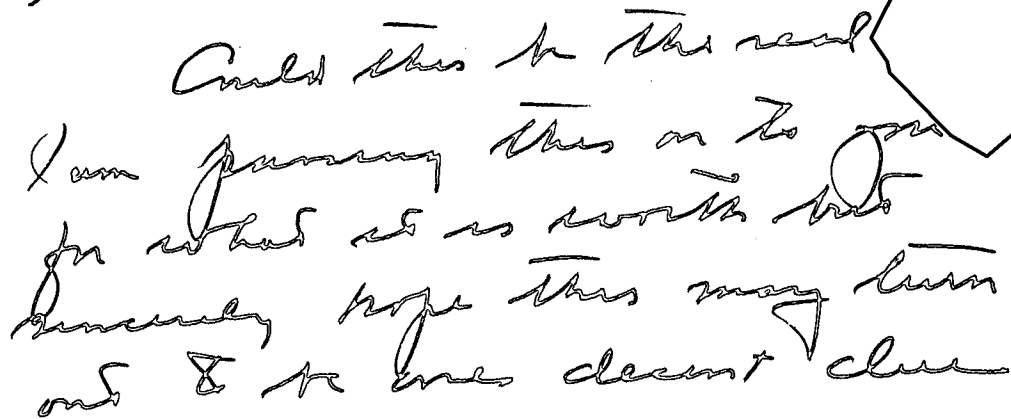 Could this be the real
I am passing this on to you
for what it is worth but
sincerely hope this may turn
out to be one decent clue